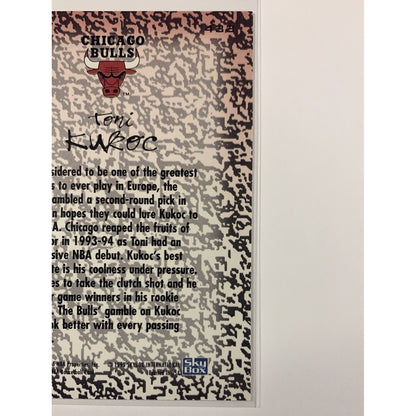 CHICAGO
BULLS
Toni
KUKOC
sidered to be one of the greatest
s to ever play in Europe, the
ambled a second-round pick in
n hopes they could lure Kukoc to
A. Chicago reaped the fruits of
or in 1993-94 as Toni had an
sive NBA debut. Kukoc's best
te is his coolness under pressure.
es to take the clutch shot and he
r game winners in his rookie
The Bulls' gamble on Kukoc
ok better with every passing
NBA Properties, Inc.
© 1995 SKYBOX INTERNATIONAL
SKY
BOX